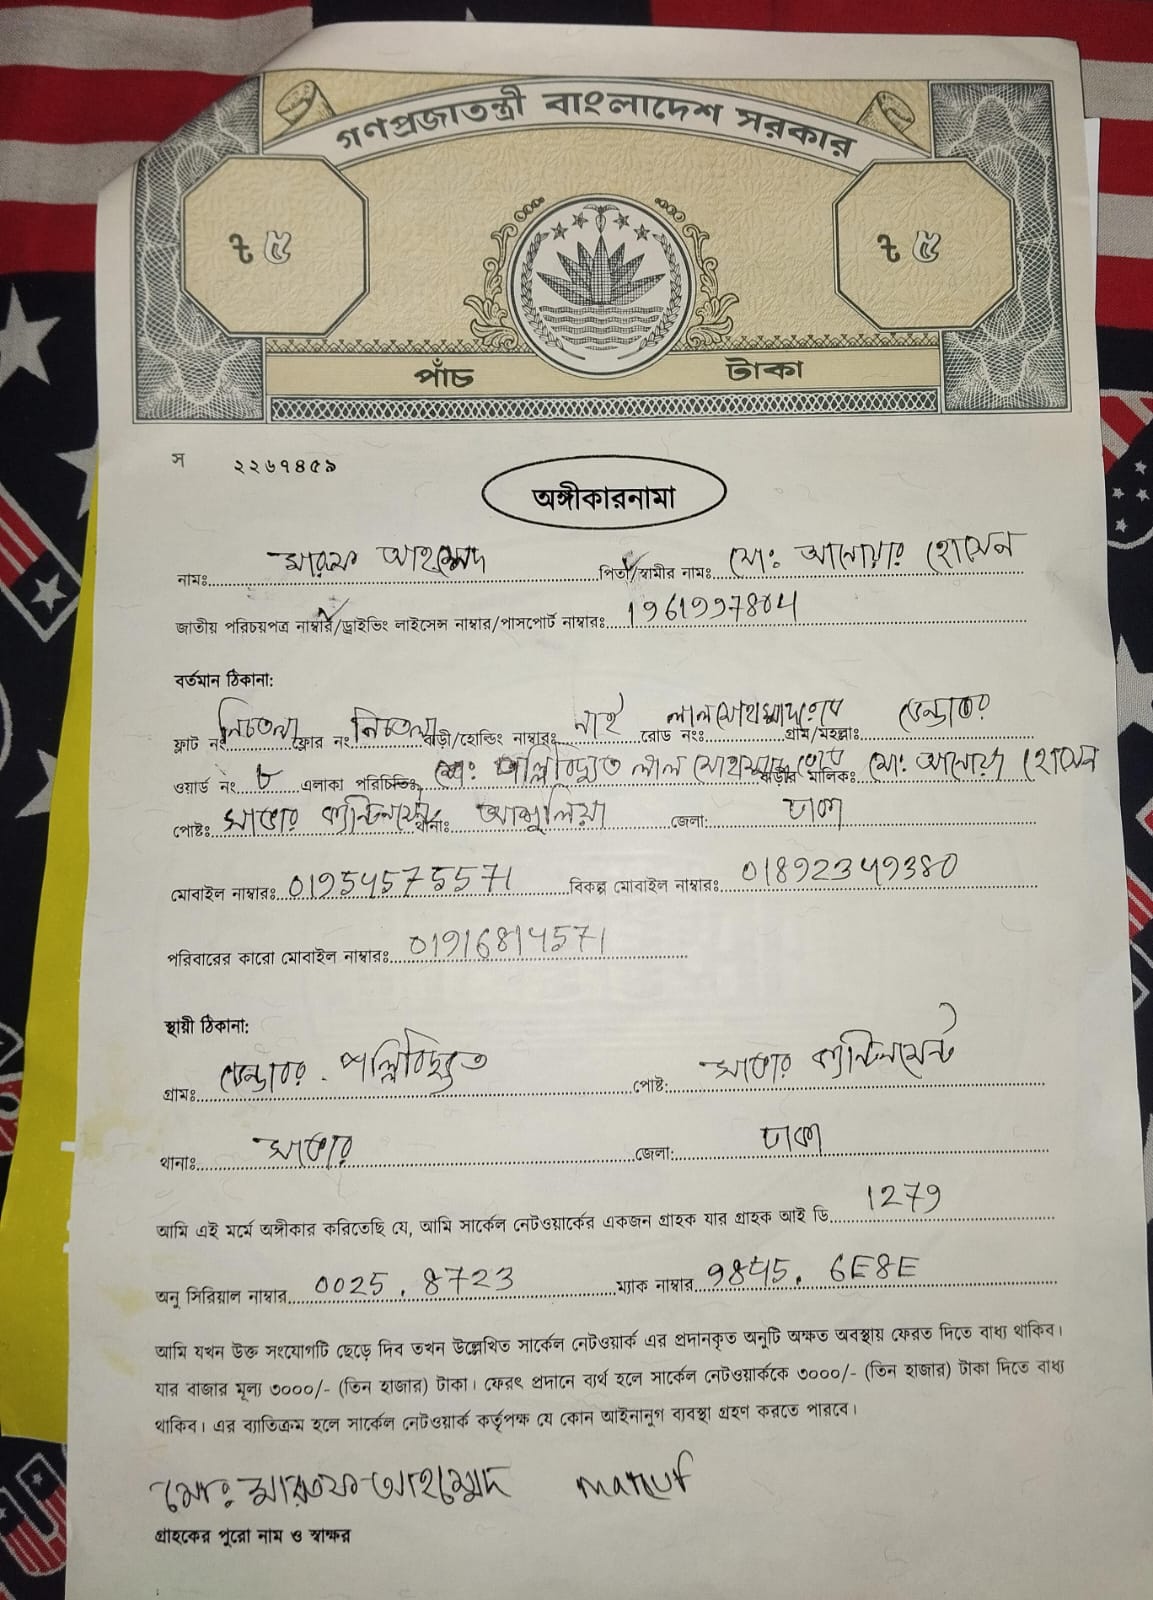 গণপ্রজাতন্ত্রী বাংলাদেশ সরকার
৳ ৫ ৳ ৫
পাঁচ টাকা
স ২২৬৭৪৫৯
অঙ্গীকারনামা
নামঃ মারুফ আহম্মেদ পিতা/স্বামীর নামঃ মোঃ আনোয়ার হোসেন
জাতীয় পরিচয়পত্র নাম্বার/ড্রাইভিং লাইসেন্স নাম্বার/পাসপোর্ট নাম্বারঃ 1961997804
বর্তমান ঠিকানা:
ফ্লাট নং নিচতলা ফ্লোর নং নিচতলা বাড়ী/হোল্ডিং নাম্বারঃ নাই রোড নংঃ গ্রাম/মহল্লাঃ
ওয়ার্ড নং ৮ এলাকা পরিচিতিঃ পল্লিবিদ্যুত লাল বাড়ীর মালিকঃ মোঃ আনোয়ার হোসেন
পোষ্টঃ সাভার ক্যান্টিনমেন্ট থানাঃ আশুলিয়া জেলা: ঢাকা
মোবাইল নাম্বারঃ 01954575571 বিকল্প মোবাইল নাম্বারঃ 01892349380
পরিবারের কারো মোবাইল নাম্বারঃ 01916814571
স্থায়ী ঠিকানা:
গ্রামঃ পল্লিবিদ্যুত পোষ্ট: সাভার ক্যান্টিনমেন্ট
থানাঃ সাভার জেলা: ঢাকা
আমি এই মর্মে অঙ্গীকার করিতেছি যে, আমি সার্কেল নেটওয়ার্কের একজন গ্রাহক যার গ্রাহক আই ডি 1279
অনু সিরিয়াল নাম্বার 0025.8723 ম্যাক নাম্বার 9845. 6E8E
আমি যখন উক্ত সংযোগটি ছেড়ে দিব তখন উল্লেখিত সার্কেল নেটওয়ার্ক এর প্রদানকৃত অনুটি অক্ষত অবস্থায় ফেরত দিতে বাধ্য থাকিব।
যার বাজার মূল্য ৩০০০/- (তিন হাজার) টাকা। ফেরৎ প্রদানে ব্যর্থ হলে সার্কেল নেটওয়ার্ককে ৩০০০/- (তিন হাজার) টাকা দিতে বাধ্য
থাকিব। এর ব্যাতিক্রম হলে সার্কেল নেটওয়ার্ক কর্তৃপক্ষ যে কোন আইনানুগ ব্যবস্থা গ্রহণ করতে পারবে।
মোঃ মারুফ আহম্মেদ maruf
গ্রাহকের পুরো নাম ও স্বাক্ষর